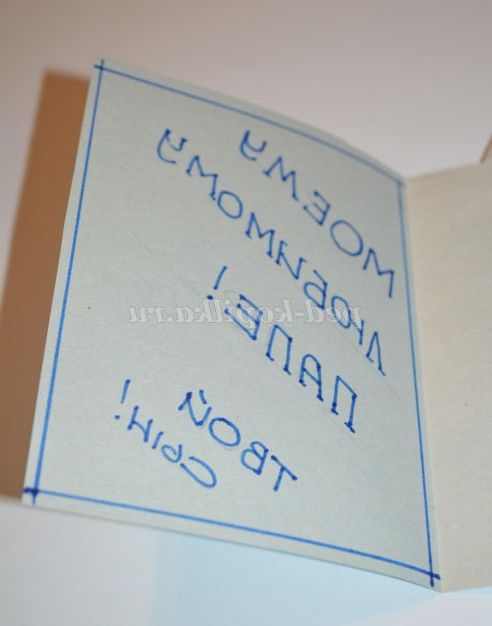 МОЕМУ
ЛЮБИМОМУ
ПАПЕ!
ТВОЙ
СЫН!
ped-kopilka.ru